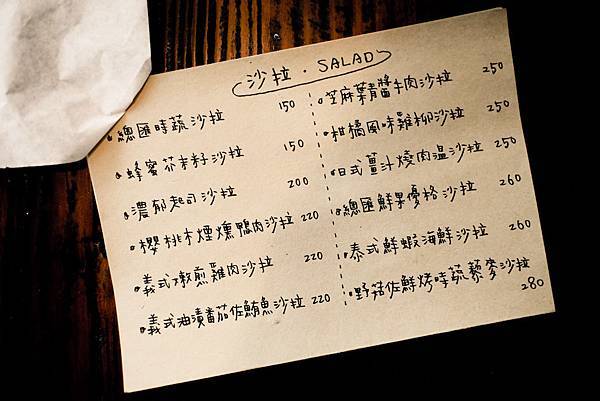 沙拉 · SALAD
總匯時蔬沙拉 150
蜂蜜芥末籽沙拉 150
濃郁起司沙拉 200
櫻桃木煙燻鴨肉沙拉 220
義式嫩煎雞肉沙拉 220
義式油漬番茄佐鮪魚沙拉 220
芝麻葉青醬牛肉沙拉 250
柑橘風味雞柳沙拉 250
日式薑汁燒肉温沙拉 250
總匯鮮果優格沙拉 260
泰式鮮蝦海鮮沙拉 260
野菇佐鮮烤時蔬藜麥沙拉
280